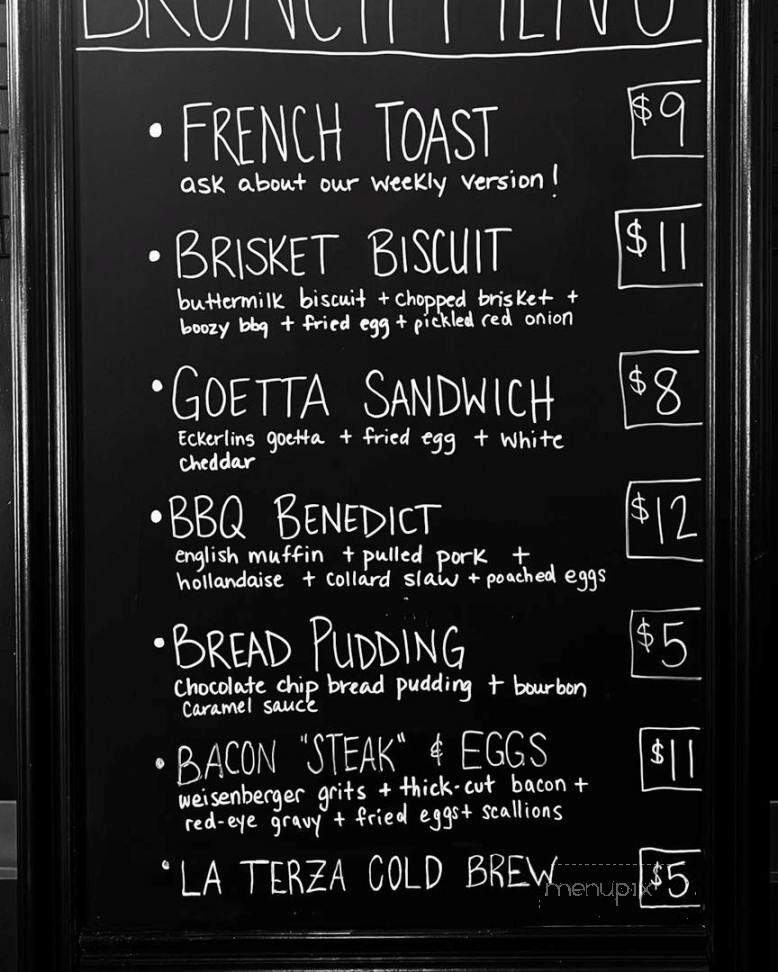 BRUNCH MENU
• FRENCH TOAST $9
ask about our weekly version!
• BRISKET BISCUIT $11
buttermilk biscuit + chopped brisket +
boozy bbq + fried egg + pickled red onion
• GOETTA SANDWICH $8
Eckerlins goetta + fried egg + white
cheddar
• BBQ BENEDICT $12
english muffin + pulled pork +
hollandaise + collard slaw + poached eggs
• BREAD PUDDING $5
chocolate chip bread pudding + bourbon
caramel sauce
• BACON "STEAK" & EGGS $11
weisenberger grits + thick-cut bacon +
red-eye gravy + fried eggs + scallions
• LA TERZA COLD BREW $5
menupix